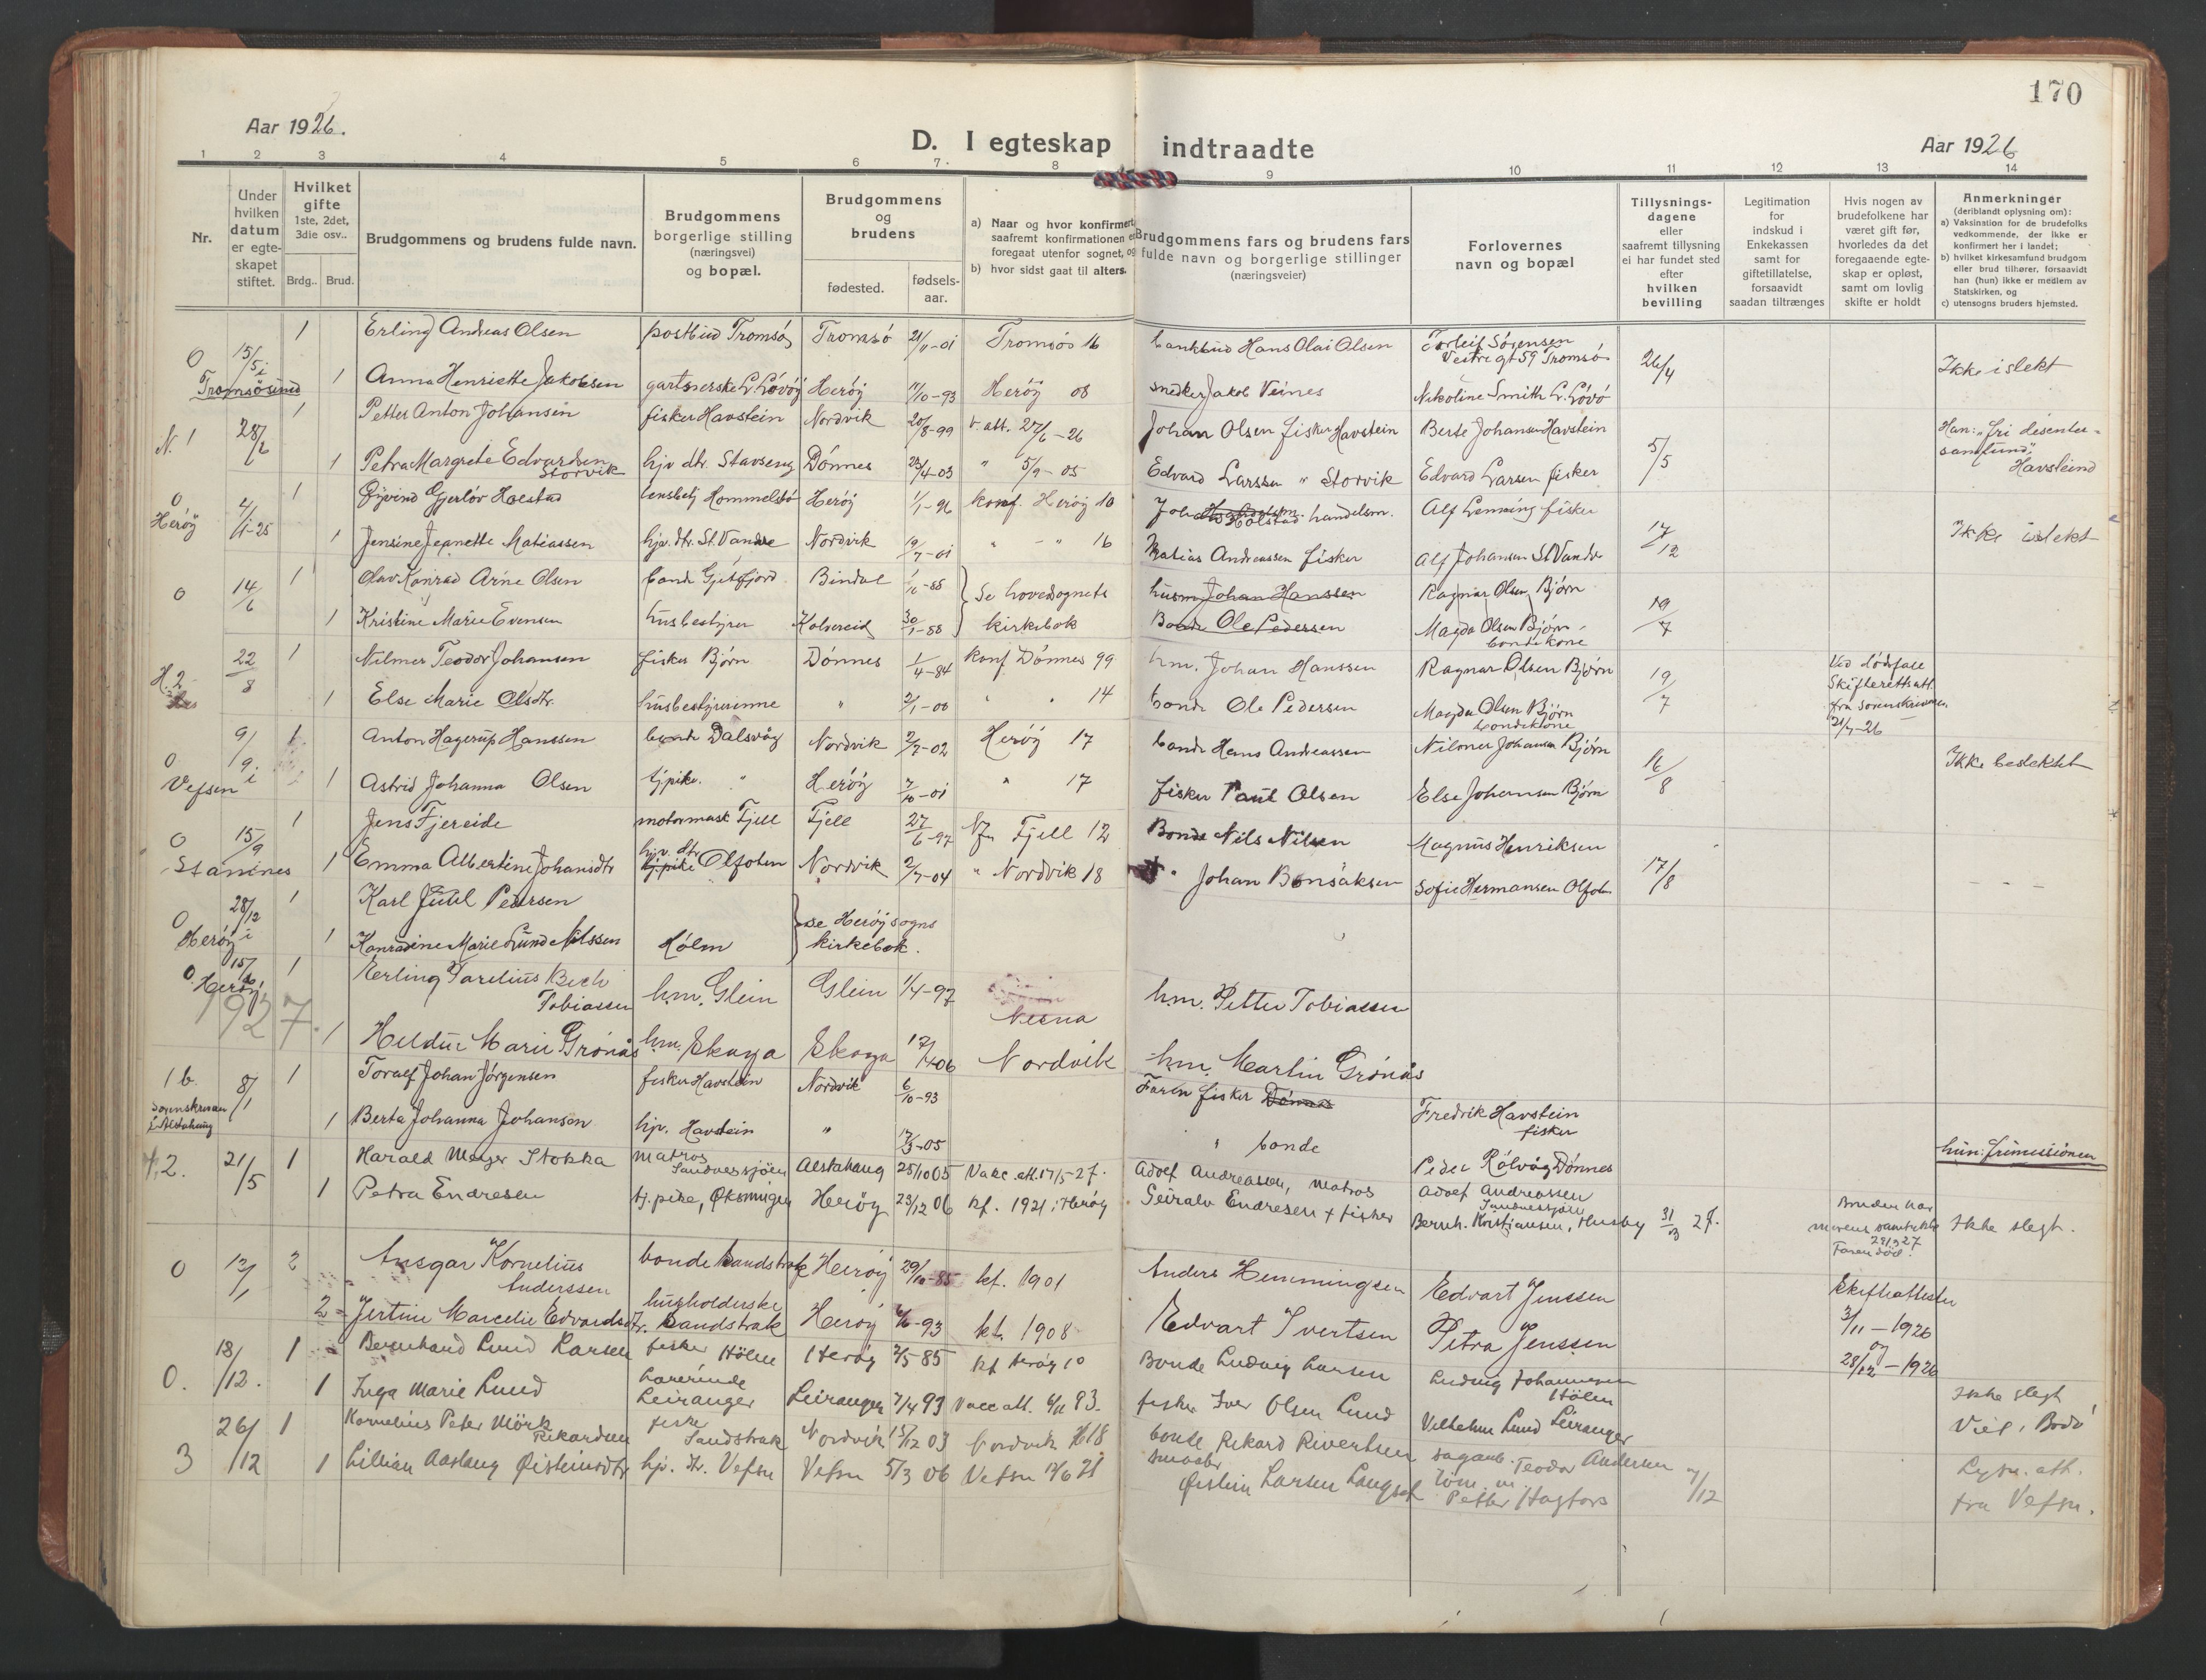 170
Aar 1926.
D. I egteskap indtraadte
Aar 1926
1 2 3 4 5 6 7 8 9 10 11 12 13 14
Nr.
Under hvilken datum er egteskapet stiftet.
Hvilket gifte 1ste, 2det, 3die osv..
Brdg.. Brud.
Brudgommens og brudens fulde navn.
Brudgommens borgerlige stilling (næringsvei) og bopæl.
Brudgommens og brudens
fødested.
fødselsaar.
a) Naar og hvor konfirmert, saafremt konfirmationen er foregaat utenfor sognet, og
b) hvor sidst gaat til alters.
Brudgommens fars og brudens fars fulde navn og borgerlige stillinger (næringsveier)
Forlovernes navn og bopæl
Tillysningsdagene eller saafremt tillysning ei har fundet sted efter hvilken bevilling
Legitimation for indskud i Enkekassen samt for giftetillatelse, forsaavidt saadan tiltrænges
Hvis nogen av brudefolkene har været gift før, hvorledes da det foregaaende egteskap er opløst, samt om lovlig skifte er holdt
Anmerkninger (deriblandt oplysning om):
a) Vaksination for de brudefolks vedkommende, der ikke er konfirmert her i landet;
b) hvilket kirkesamfund brudgom eller brud tilhører, forsaavidt han (hun) ikke er medlem av Statskirken, og
c) utensogns bruders hjemsted.
O 15/5 i 1 Erling Andreas Olsen postbud Tromsö Tromsö 21/11-01 Tromsö 16 bankbud Hans Olai Olsen Torleif Sörensen
Vestregt 59 Tromsö 26/4 Ikke i slekt
Tromsösund 1 Anna Henriette Jakobsen gartnerske L. Lövöy Heröy 11/10-93 Heröy 08 snedker Jakob Veines Nikoline Smith L. Lövö
N. 1 28/6 1 Petter Anton Johansen fisker Havstein Nordvik 20/8-99 v. att. 27/6-26 Johan Olsen fisker Havstein Berte Johansen Havstein 5/5 Han: "fri
samfund"
Havstein
1 Petra Margrete Edvardsen
Storvik hjv dtr. Stavseng Dönnes 23/4-03 " 5/9-05 Edvard Larssen " Storvik Edvard Larsen fisker
O 4/1-25 1 Öyvind Gjerlöv Holstad Hommelstö Heröy 1/1-96 konf. Heröy 10 Holstad handelsm. Alf Lenning fisker 17/12 Ikke i slekt
Heröy 1 Jensine Jeanette Matiassen hjv. dtr. St. Vandve Nordvik 19/7-01 " - " 16 Matias Andreassen fisker Alf Johansen St. Vandve
O 14/6 1 Olav Konrad Arne Olsen bonde Gjetsfjord Bindal -88 Se hovedsognets husm Johan Hanssen Ragnar Olsen Björn 19/7
1 Kristine Marie Evensen husbestyrer Kolvereid 30/1-88 kirkebok Bonde Ole Pedersen Magda Olsen Björn
bondekone
H. 2 22/8 1 Nilmer Teodor Johansen fisker Björn Dönnes 1/4-84 konf Dönnes 99 hm. Johan Hanssen Ragnar Olsen Björn 19/7 Ved dödsfald
Skifterettsatt.
fra sorenskriveren
21/7-26
1 Else Marie Olsdtr. husbestyrerinne " 2/1-00 " " 14 bonde Ole Pedersen Magda Olsen Björn
bondekone
O 9/9. i 1 Anton Hagerup Hanssen bonde Dalsvåg Nordvik 2/7-02 Heröy 17 bonde Hans Andreassen Nilmer Johansen Björn 16/8 Ikke beslektet
Vefsen 1 Astrid Johanna Olsen tjpike. " Heröy 7/10-01 " 17 fisker Paul Olsen Else Johansen Björn
O 15/9 1 Jens Fjereide motormask Fjell Fjell 27/6-97 Fjell 12 Bonde Nils Nilsen Magnus Henriksen 17/8 - - -
Stamnes 1 Emma Albertine Johansdtr hjv. dtr
tjpike Olfoten Nordvik 2/7-04 " Nordvik 18 " Johan Bonsaksen Sofie Hermansen Olfoten
O 28/12 1 Karl Juul Pedersen se Heröy sogns
Heröy i 1 Konradine Marie Lund Nilssen Hölen kirkebok.
O. 15/ 1 Erling Parelius Bech
Tobiassen hm. Glein Glein 1/4-97 Nesna hm. Petter Tobiassen
Heröy
1927. 1 Heldur Marie Grönås hm. Skaga Skaga 17/4 06 Nordvik hm. Martin Grönås
1 b. 8/1 1 Toralf Johan Jörgensen fisker Havstein Nordvik 6/10-93 Faren fisker Dönnes Fredrik Havstein
fisker
Sorenskriveren
i Alstahaug 1 Berta Johanna Johansen hjv. Havstein " 17/3-05 " bonde hun: frimissionen
2. 21/5 1 Harald Meyer Stokka matros
Sandnessjöen Alstahaug 25/10 05 Vakc. att. 17/5-27. Adolf Andreassen, matros Peder Rölvåg Dönnes
Adolf Andreassen
Sandnessjöen
1 Petra Endresen tj. pike, Öksningen Heröy 23/12 06 kf. 1921 i Heröy Endresen + fisker Bernh. Kristiansen, Husby 31/3 27. Bruden har
morens samtykke
Faren död. Ikke slegt.
O 12/1 2 Ansgar Kornelius
Anderssen bonde Sandstrak Heröy 29/10-85 kf. 1901 Anders Hemmingsen Edvart Jenssen Skifteattester
3/11-1926
og
28/12-1926
2 Jertine Marcelie Edvardsdtr. husholderske
Sandstrak Heröy -93 kf. 1908 Edvart Ivertsen Petra Jenssen
O. 18/12. 1 Bernhard Lund Larsen fisker Hölen Heröy 2/5 85 kf Heröy 10 Bonde Ludvig Larsen Ludvig Johannesen
Hölen Ikke slegt
1 Inga Marie Lund lærerinde
Leiranger Leiranger 7/4 93 Vacc att. 93. fisker Iver Olsen Lund Vilhelm Lund Leiranger Bodö
3 26/12 1 Kornelius Peter Mörk
Rikardsen fisker
Sandstrak Nordvik 15/12 03 Nordvik 18 bonde Rikard Sivertsen Teodor Andersen 7/12 Lysn. att.
fra Vefsn.
1 Lillian Aaslaug Öisteinsdtr hjv. tr. Vefsn Vefsn 5/3 06 Vefsn 21 Öistein Larsen Petter Hagfors